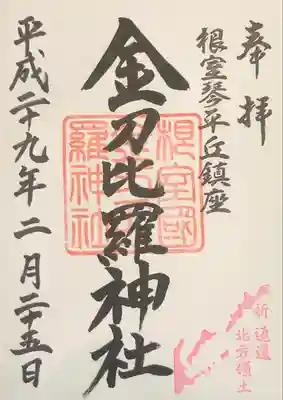 奉拝
根室琴平丘鎮座
金刀比羅神社
平成二十九年二月二十五日
根室國
羅神社
祈返還
北方領土